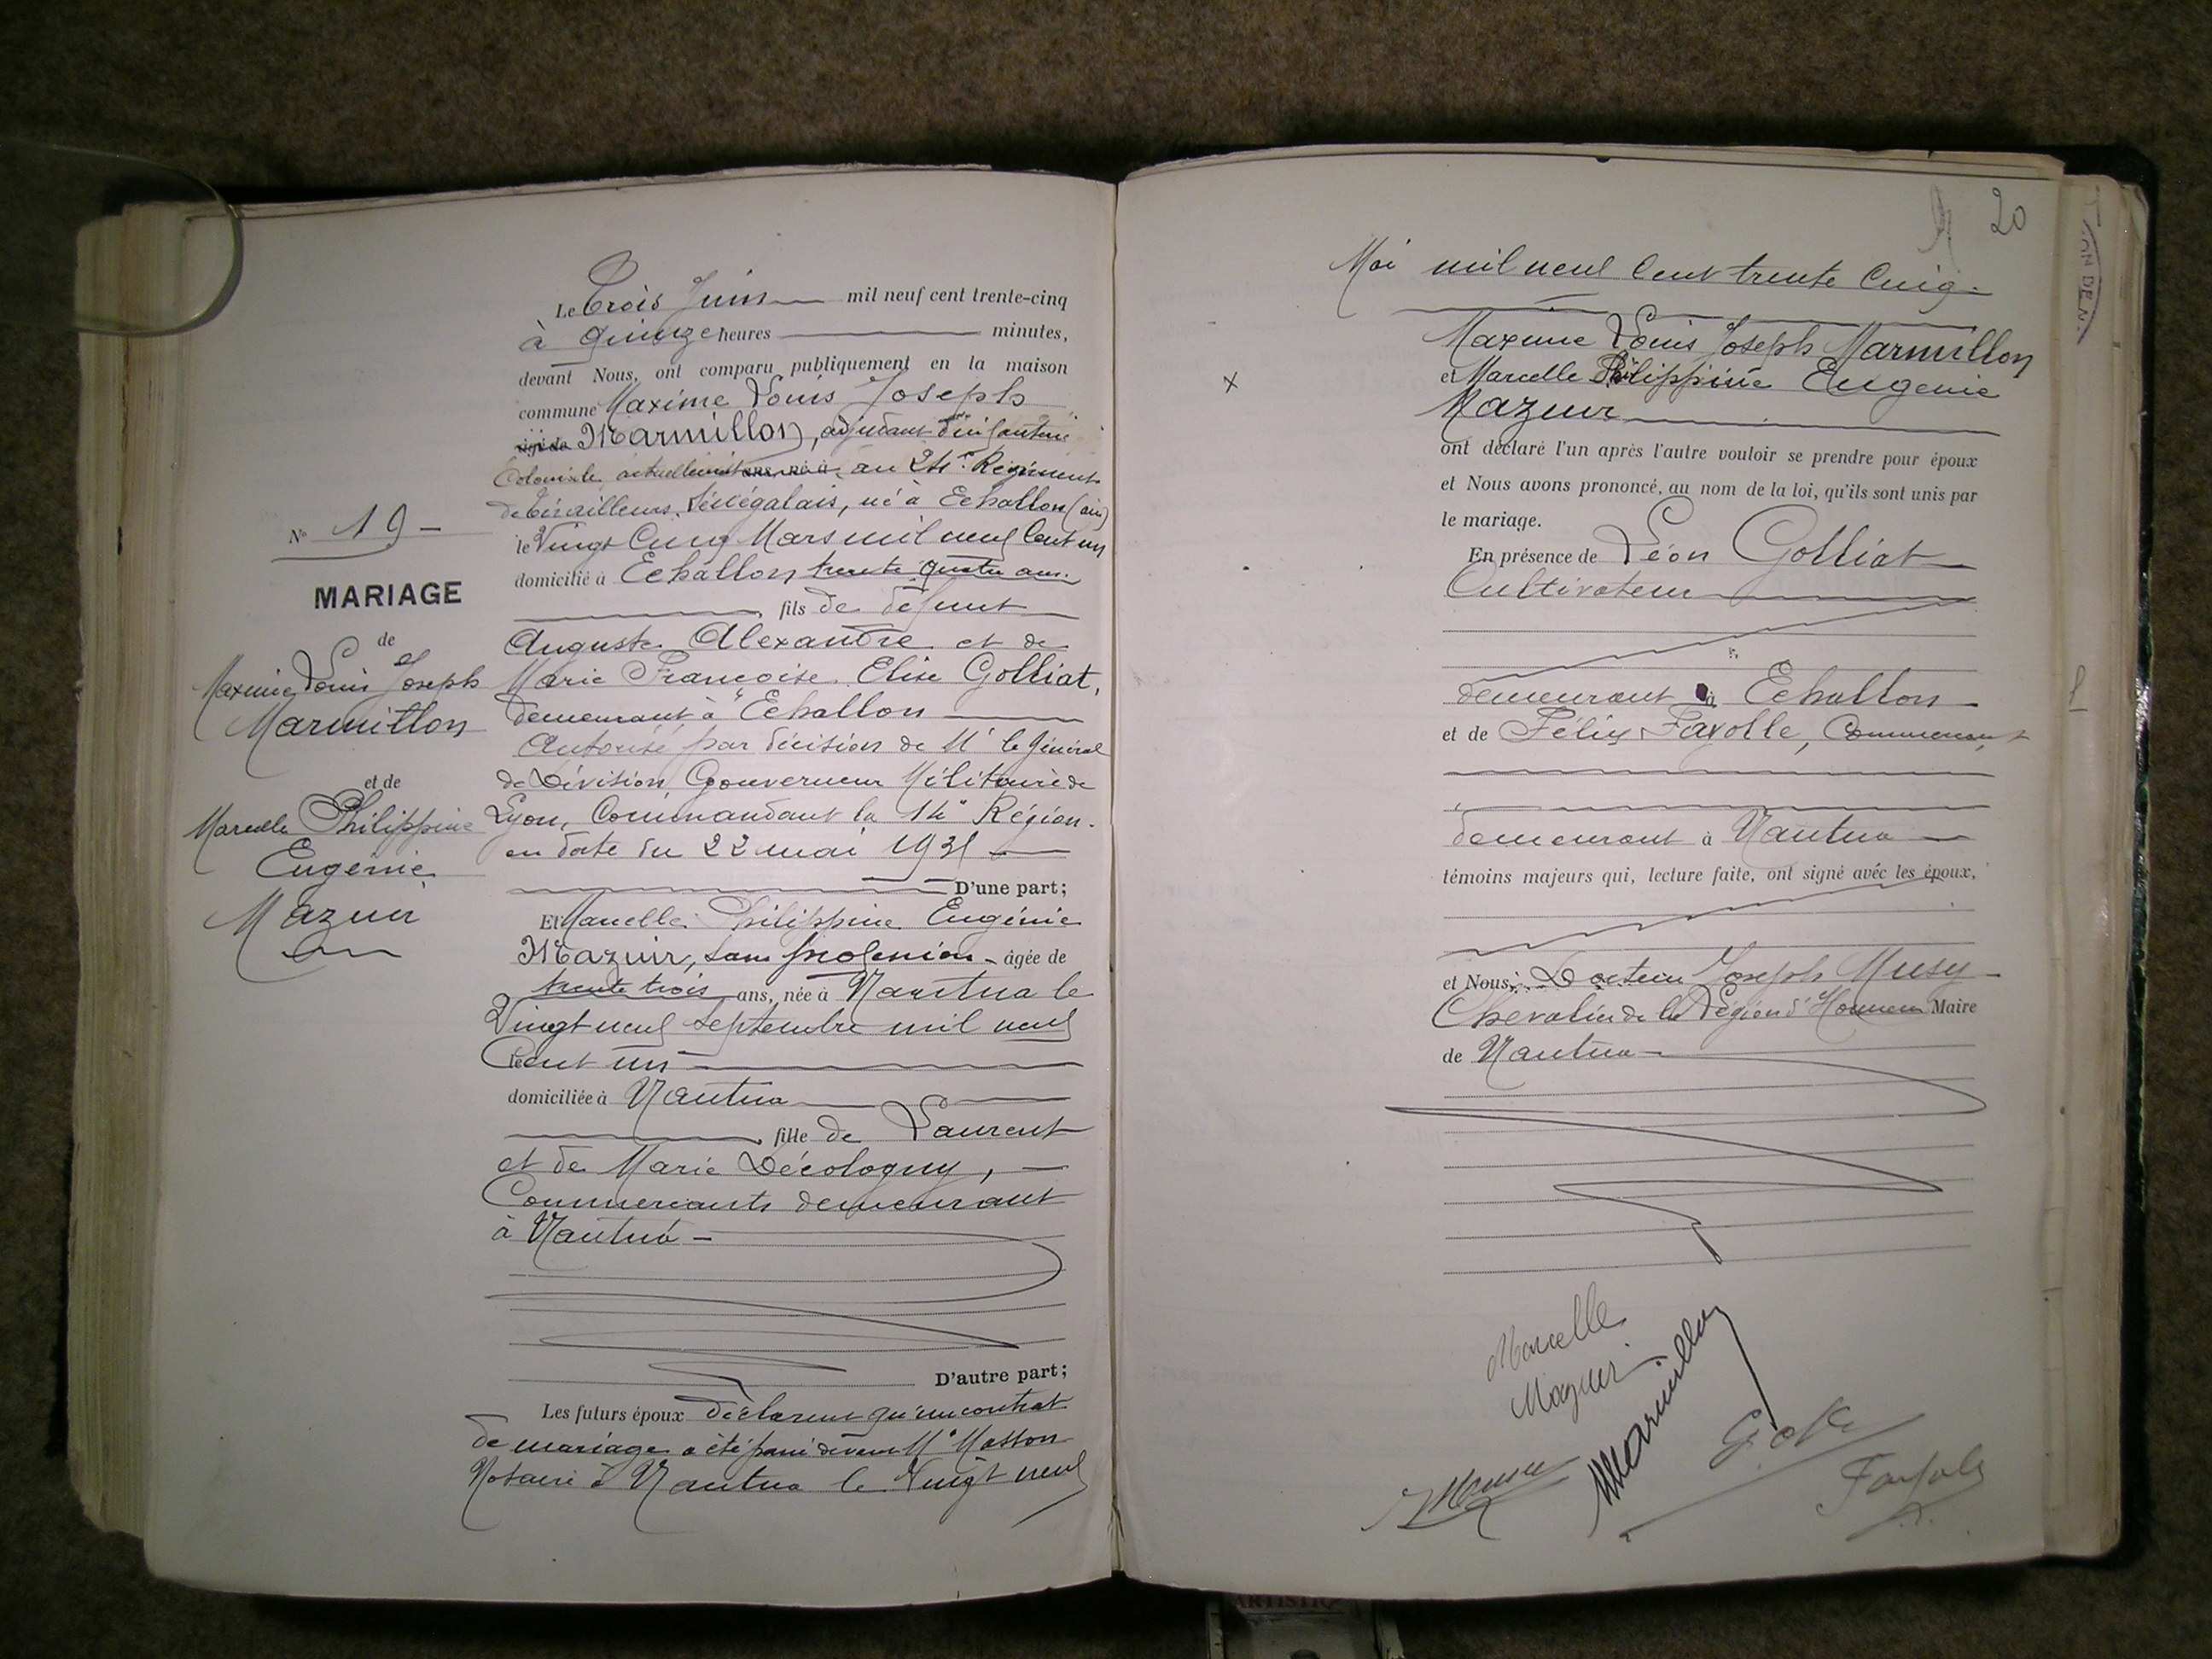 N° 19 -
MARIAGE
de
Maxime Louis Joseph
Marmillon
et de
Marcelle Philippine
Eugénie
Mazuir
Le Trois Juin mil neuf cent trente-cinq
à quinze heures minutes,
devant Nous, ont comparu publiquement en la maison
commune Maxime Louis Joseph
âgé de Marmillon, adjudant d'infanterie
Coloniale, actuellement ans, né à au 24e Régiment
de Tirailleurs Sénégalais, né à Echallon (ain)
le Vingt Cinq Mars mil neuf Cent un
domicilié à Echallon trente quatre ans.
fils de défunt
Auguste Alexandre et de
Marie Françoise Elise Golliat,
demeurant à Echallon
Autorisé par décision de Mr le Général
de Division, Gouverneur Militaire de
Lyon, Commandant la 14e Région.
en date du 22 mai 1935
D'une part;
Et Marcelle Philippine Eugénie
Mazuir, sans profession - âgée de
trente trois ans, née à Nantua le
Vingt neuf Septembre mil neuf
Cent un
domiciliée à Nantua
fille de Laurent
et de Marie Décologny,
Commerçants demeurant
à Nantua -
D'autre part;
Les futurs époux déclarent qu'un contrat
de mariage a été passé devant Me Masson
Notaire à Nantua le Vingt neuf
20
Mai mil neuf Cent trente Cinq.
Maxime Louis Joseph Marmillon
et Marcelle Philippine Eugénie
Mazuir
ont déclaré l'un après l'autre vouloir se prendre pour époux
et Nous avons prononcé, au nom de la loi, qu'ils sont unis par
le mariage.
En présence de Léon Golliat
Cultivateur
demeurant à Echallon
et de Félix Fayolle, Commerçant
demeurant à Nantua
témoins majeurs qui, lecture faite, ont signé avec les époux,
et Nous, Docteur Joseph Musy
Chevalier de la Légion d'Honneur Maire
de Nantua
Marcelle
Mazuir
Marmillon